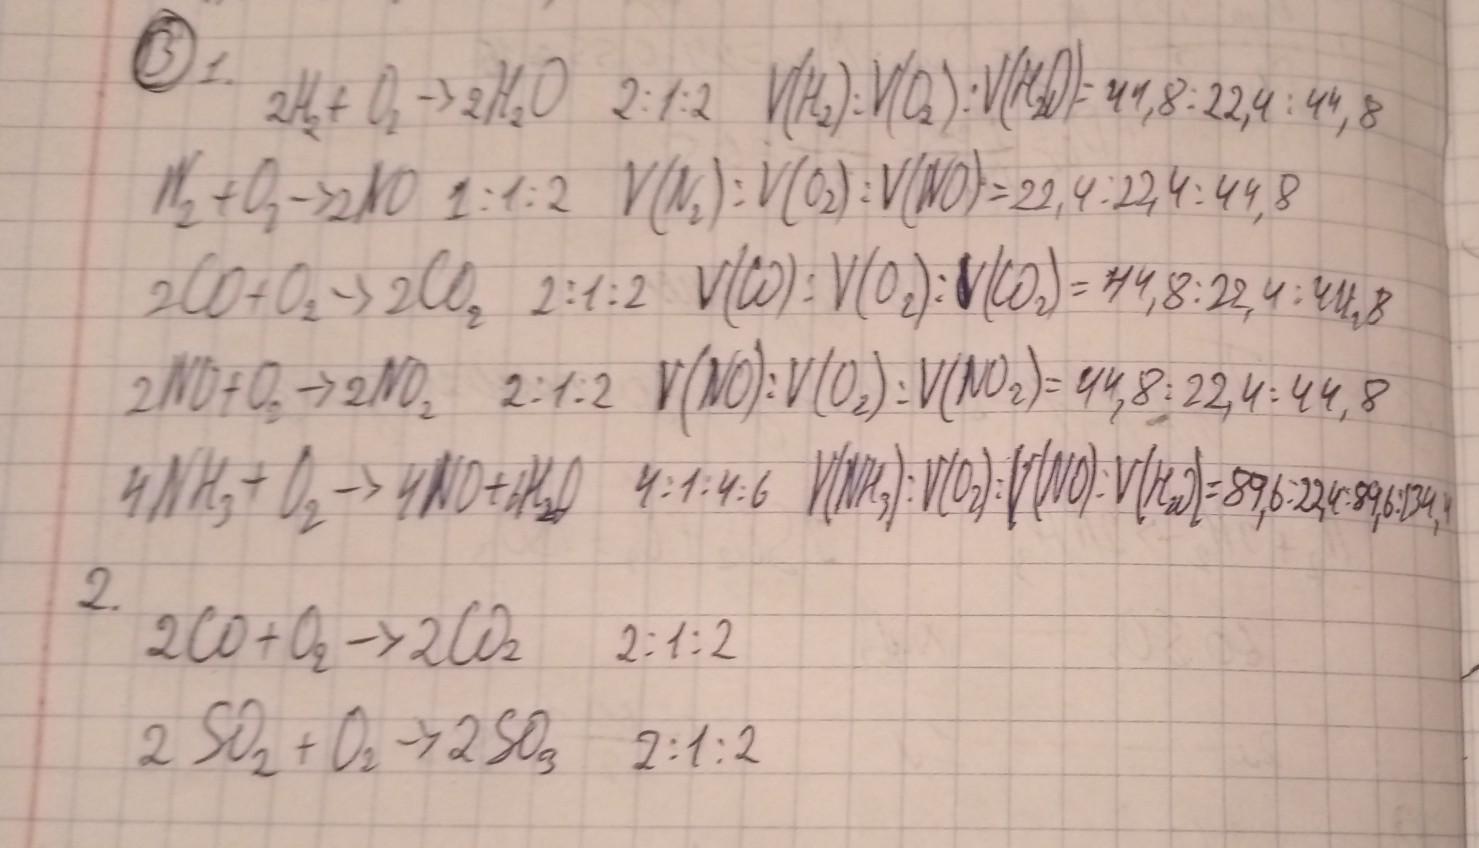 В 1.
2H₂ + O₂ → 2H₂O 2:1:2 V(H₂):V(O₂):V(H₂O)= 44,8:22,4:44,8
N₂ + O₂ → 2NO 1:1:2 V(N₂):V(O₂):V(NO)=22,4:22,4:44,8
2CO+O₂ → 2CO₂ 2:1:2 V(CO):V(O₂):V(CO₂)=44,8:22,4:44,8
2NO+O₂ → 2NO₂ 2:1:2 V(NO):V(O₂):V(NO₂)=44,8:22,4:44,8
4NH₃ + O₂ → 4NO+6H₂O 4:1:4:6 V(NH₃):V(O₂):V(NO):V(H₂O)=89,6:22,4:89,6:134,4
2.
2CO+O₂ → 2CO₂ 2:1:2
2SO₂ + O₂ → 2SO₃ 2:1:2